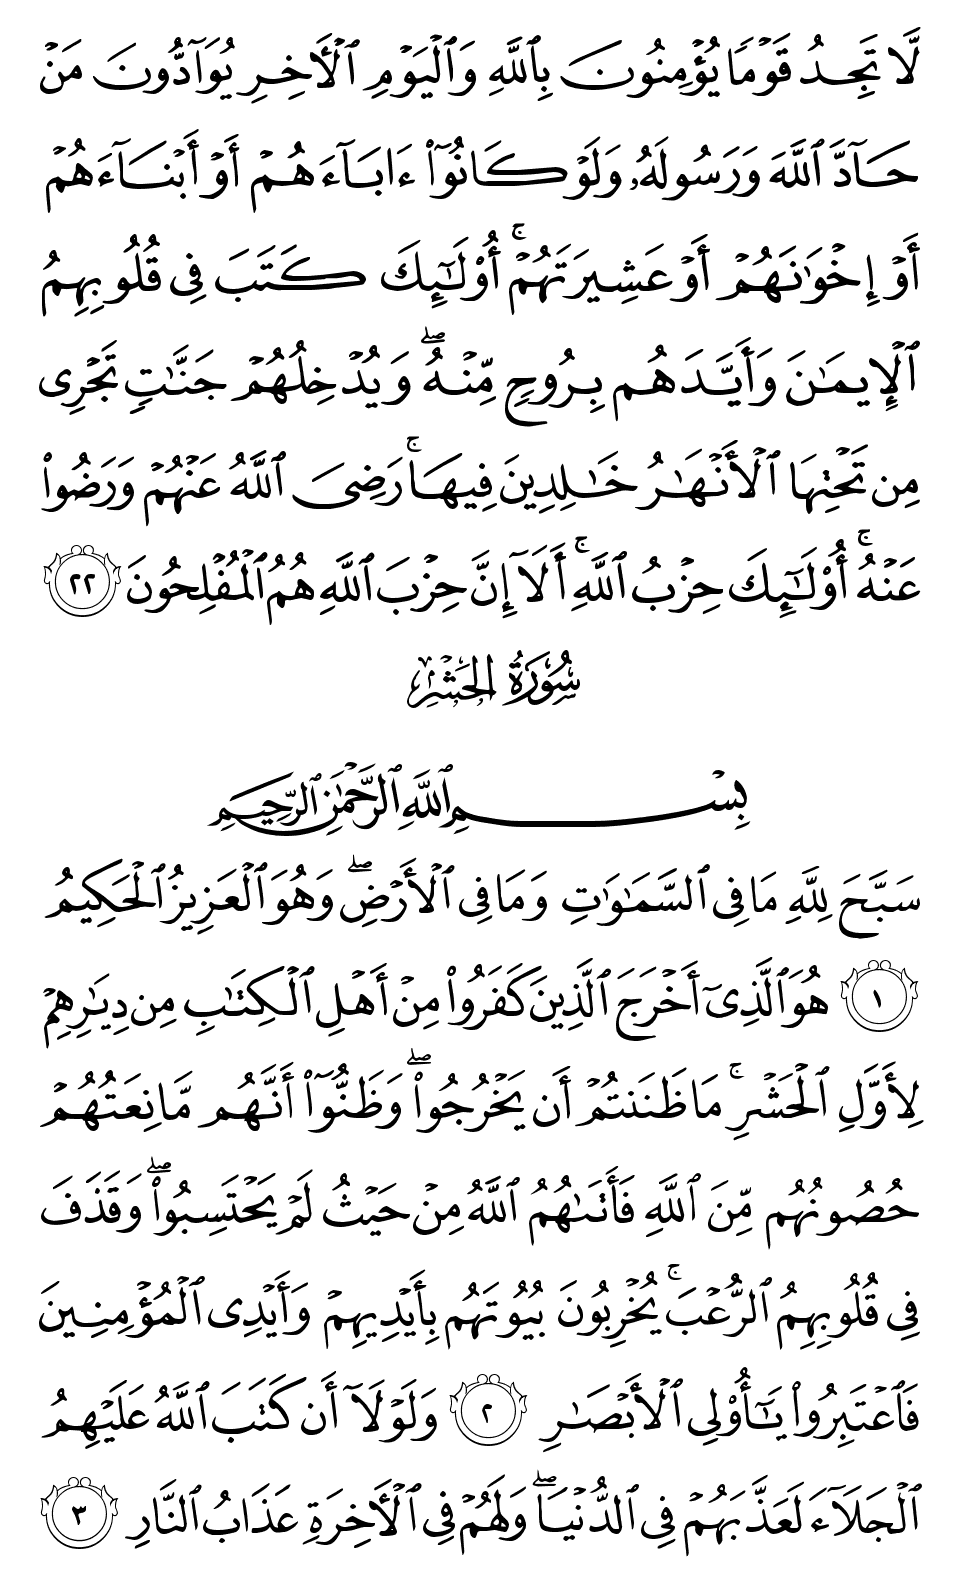 لَّا تَجِدُ قَوْمًا يُؤْمِنُونَ بِٱللَّهِ وَٱلْيَوْمِ ٱلْأَخِرِ يُوَآدُّونَ مَنْ
حَآدَّ ٱللَّهَ وَرَسُولَهُۥ وَلَوْ كَانُوٓا۟ ءَابَآءَهُمْ أَوْ أَبْنَآءَهُمْ
أَوْ إِخْوَٰنَهُمْ أَوْ عَشِيرَتَهُمْ ۚ أُو۟لَـٰٓئِكَ كَتَبَ فِى قُلُوبِهِمُ
ٱلْإِيمَـٰنَ وَأَيَّدَهُم بِرُوحٍ مِّنْهُ ۖ وَيُدْخِلُهُمْ جَنَّـٰتٍ تَجْرِى
مِن تَحْتِهَا ٱلْأَنْهَـٰرُ خَـٰلِدِينَ فِيهَا ۚ رَضِىَ ٱللَّهُ عَنْهُمْ وَرَضُوا۟
عَنْهُ ۚ أُو۟لَـٰٓئِكَ حِزْبُ ٱللَّهِ ۚ أَلَآ إِنَّ حِزْبَ ٱللَّهِ هُمُ ٱلْمُفْلِحُونَ ٢٢
سُورَةُ الحَشْرِ
بِسْمِ ٱللَّهِ ٱلرَّحْمَـٰنِ ٱلرَّحِيمِ
سَبَّحَ لِلَّهِ مَا فِى ٱلسَّمَـٰوَٰتِ وَمَا فِى ٱلْأَرْضِ ۖ وَهُوَ ٱلْعَزِيزُ ٱلْحَكِيمُ
١ هُوَ ٱلَّذِىٓ أَخْرَجَ ٱلَّذِينَ كَفَرُوا۟ مِنْ أَهْلِ ٱلْكِتَـٰبِ مِن دِيَـٰرِهِمْ
لِأَوَّلِ ٱلْحَشْرِ ۚ مَا ظَنَنتُمْ أَن يَخْرُجُوا۟ ۖ وَظَنُّوٓا۟ أَنَّهُم مَّانِعَتُهُمْ
حُصُونُهُم مِّنَ ٱللَّهِ فَأَتَىٰهُمُ ٱللَّهُ مِنْ حَيْثُ لَمْ يَحْتَسِبُوا۟ ۖ وَقَذَفَ
فِى قُلُوبِهِمُ ٱلرُّعْبَ ۚ يُخْرِبُونَ بُيُوتَهُم بِأَيْدِيهِمْ وَأَيْدِى ٱلْمُؤْمِنِينَ
فَٱعْتَبِرُوا۟ يَـٰٓأُو۟لِى ٱلْأَبْصَـٰرِ ٢ وَلَوْلَآ أَن كَتَبَ ٱللَّهُ عَلَيْهِمُ
ٱلْجَلَآءَ لَعَذَّبَهُمْ فِى ٱلدُّنْيَا ۖ وَلَهُمْ فِى ٱلْأَخِرَةِ عَذَابُ ٱلنَّارِ ٣